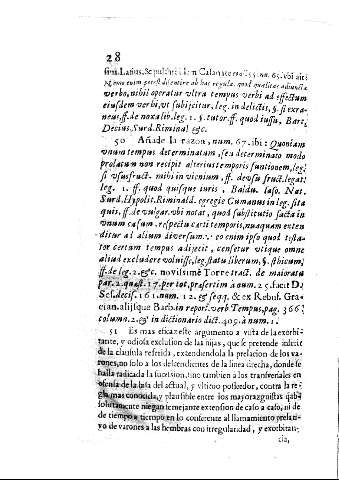 28
sius, Latius, & pulchre
Nemo enim potest discutere ab hac regula, quod qualitas adiuncta
verbo, nihil operatur vltra tempus verbi ad effectum
eiusdem verbi, vt subijcitur, leg. in delictis, §. si extra-
neus, ff. de noxalib. leg. 1. §. tutor. ff. quod iussu, Bart.
Decius, Surd. Riminal &c.
50 Añade la razon, num. 67. ibi: Quoniam
vnum tempus determinatum, seu determinato modo
prolatum non recipit alterius temporis suntionem, leg.
si vsusfruct. mihi in vicnium, ff. de vsu fruct. legat.
leg. 1. ff. quod quisque iuris, Baldu. Iaso, Nat.
Surd. Hypolit. Riminald. egregie Cumanus in leg. sita
quis. ff. de vulgar. vbi notat, quod substitutio facta in
vnum casum, respectu certi temporis, nunquam exten
ditur ad alium diversum. & eo enim ipso quod testa-
tor certum tempus adjecit, censetur vtique omne
aliud excludere voluisse, leg. statu liberum, §. stichum;
ff. de leg. 2. &c. novissimè Torre tract. de maiorat.
par. 2. quæst. 17. per tot, præsertim à num. 25. fucit D.
Sel. decis. 161. num. 12. & seqq. & ex Rebuf. Gra-
cian. aliisque Barb. in repert. verb Tempus, pag. 366.
column. 2. & in dictionaris dict. 409. à num. 1.
51 Es mas eficaz este argumento à vista de la exorbi-
tante, y odiosa exclusion de las hijas, que se pretende inferir
de la clausula referida, extendiendola la prelacion de los va-
rones, no solo a los descendientes de la linea drecha, donde se
halla radicada la sucession, sino tambien à los transversales en
ofensa de la hija del actual, y vltimo posseedor, contra la re-
gla mas conocida, y plausible entre los mayorazguistas, que ab-
solutamente niegan semejante extension de caso a caso, ni de
de tiempo a tiempo en lo conferente al llamamiento prelati-
vo de varones a las hembras con irregularidad, y exorbitan-
cia,